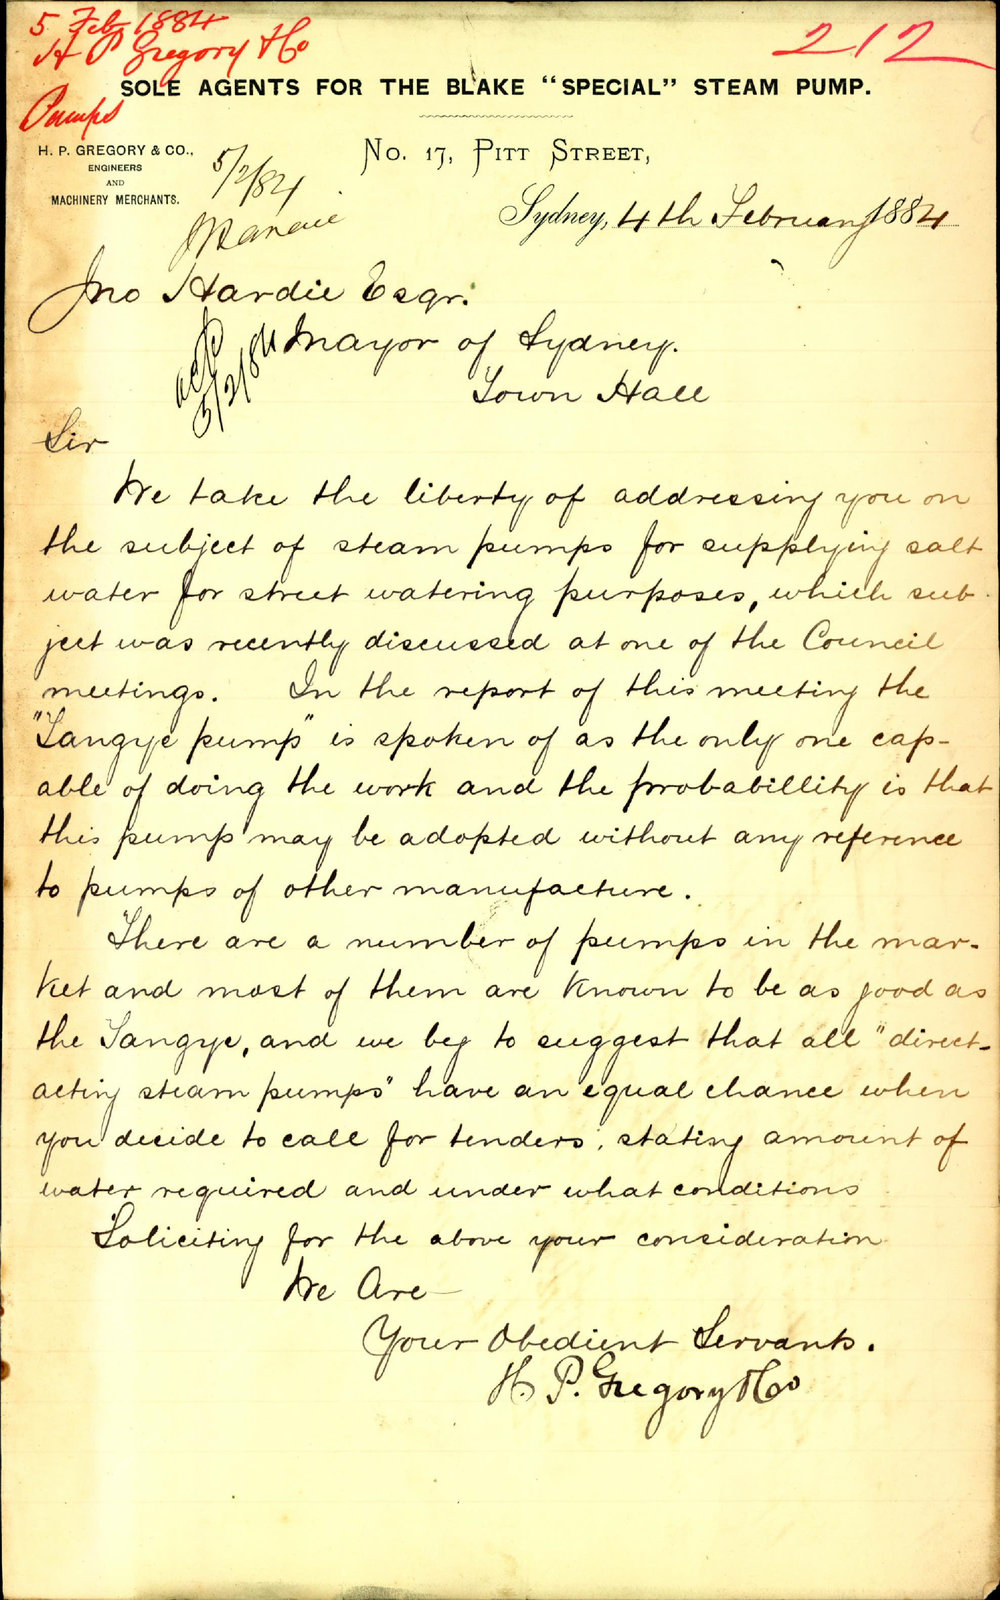 5 Feb 1884
H P Gregory & Co
212
Pumps
SOLE AGENTS FOR THE BLAKE "SPECIAL" STEAM PUMP.
H. P. GREGORY & CO.,
ENGINEERS
AND
MACHINERY MERCHANTS.
No. 17, Pitt Street,
5/2/84
Sydney, 4th February 1884
Jno Hardie Esqr.
Mayor of Sydney.
Town Hall
ackd
5/2/84
Sir
We take the liberty of addressing you on
the subject of steam pumps for supplying salt
water for street watering purposes, which sub-
ject was recently discussed at one of the Council
meetings. In the report of this meeting the
"Tangye pump" is spoken of as the only one cap-
able of doing the work and the probabillity is that
this pump may be adopted without any reference
to pumps of other manufacture.
There are a number of pumps in the mar-
ket and most of them are known to be as good as
the Tangye, and we beg to suggest that all "direct-
acting steam pumps" have an equal chance when
you decide to call for tenders, stating amount of
water required and under what conditions
Soliciting for the above your consideration
We Are
Your Obedient Servants.
H. P. Gregory & Co